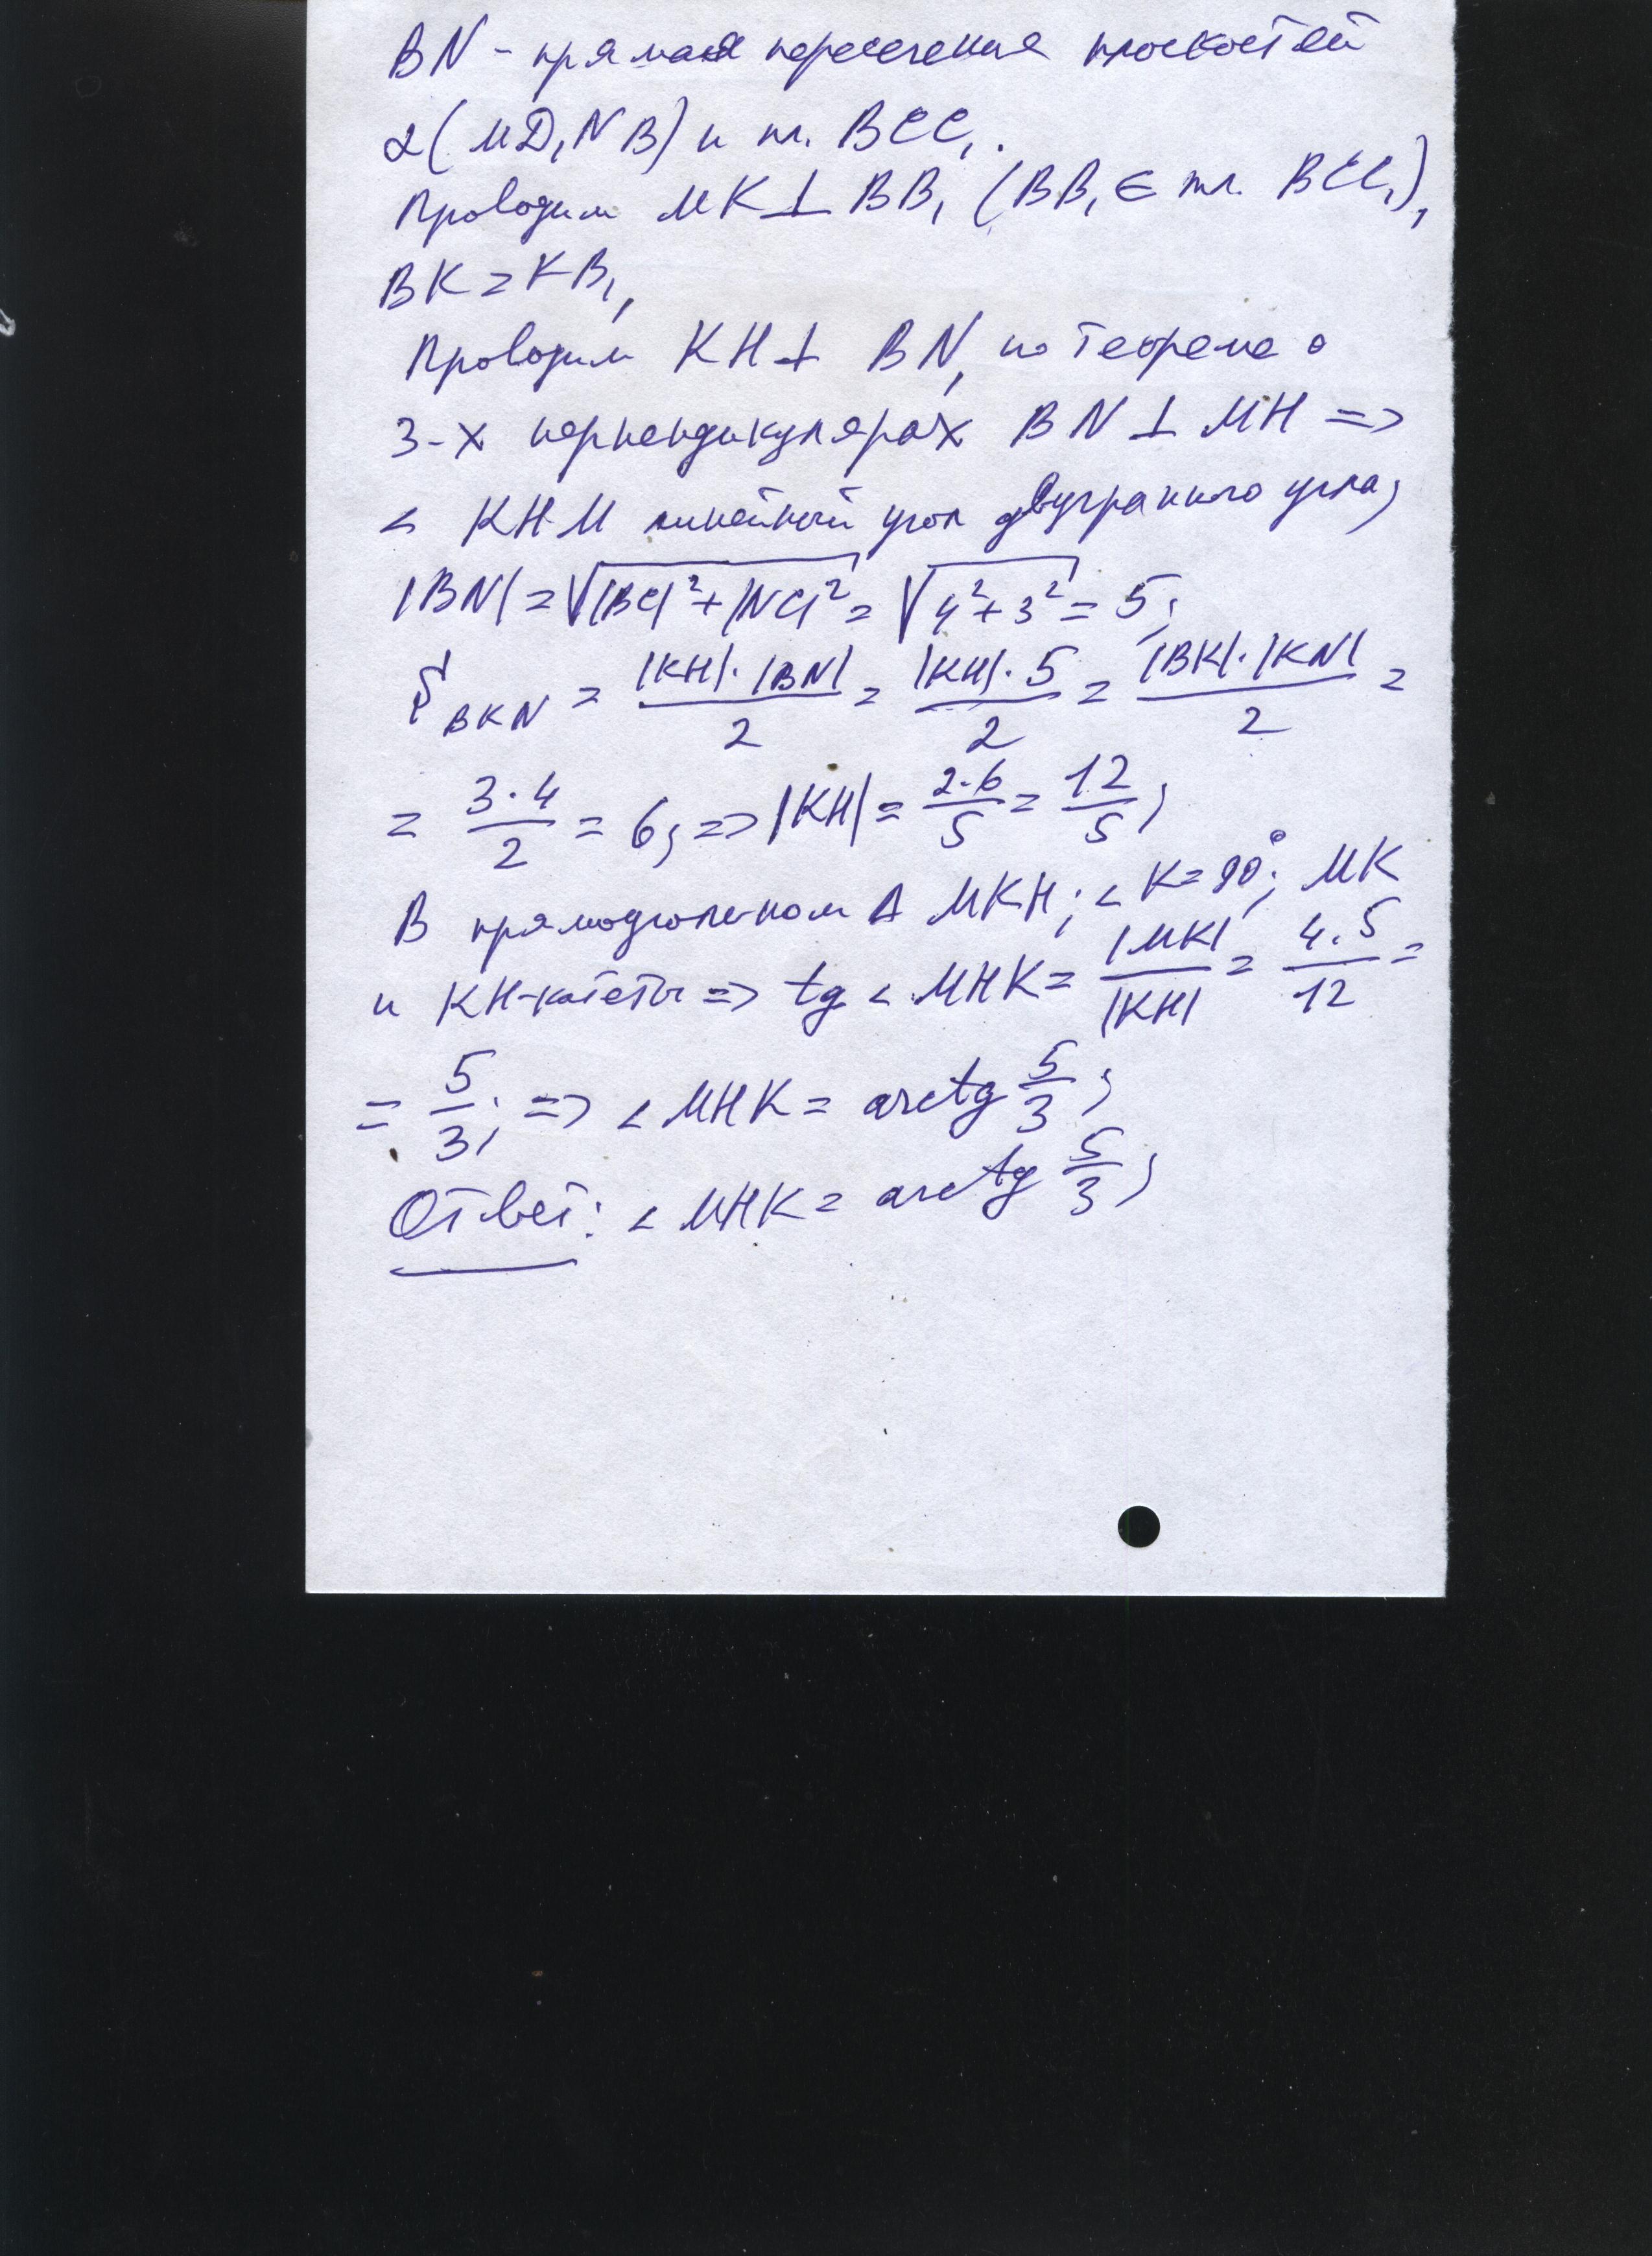 BN - прямая пересечения плоскостей
α(MD₁NB) и пл. BCC₁.
Проводим MK⊥BB₁ (BB₁∈ пл. BCC₁),
BK=KB₁,
Проводим KH⊥ BN, по теореме о
3-х перпендикулярах BN⊥MH =>
∠ KHM линейный угол двугранного угла;
|BN|=√(|BC|²+|NC|²)=√(4²+3²)=5;
S_BKN = |KH|·|BN|/2 = |KH|·5/2 = |BK|·|KN|/2 =
= 3·4/2 = 6; => |KH| = 2·6/5 = 12/5;
В прямоугольном Δ MKH; ∠K=90°; MK
и KH-катеты => tg ∠MHK= |MK|/|KH| = 4·5/12 =
= 5/3; => ∠MHK = arctg 5/3;
Ответ: ∠MHK = arctg 5/3;